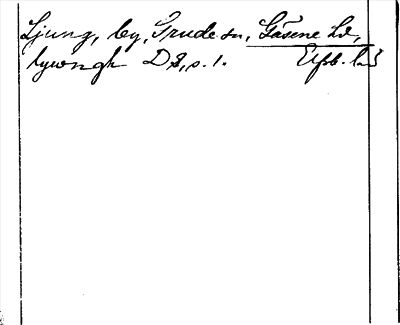 Ljung, by, Grude sn, Gäsene hd,
lywngh D 2, s. 1. Elfsb. l.